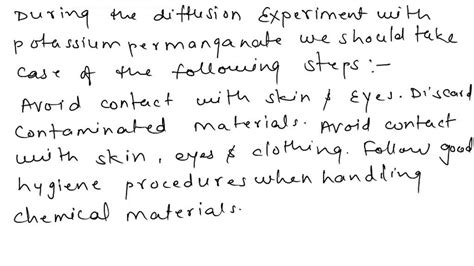 During the diffusion Experiment with
potassium permanganate we should take
case of the following steps :-
Avoid contact with skin & Eyes. Discard
Contaminated materials. Avoid contact
with skin, eyes & clothing. Follow good
hygiene procedures when handling
chemical materials.